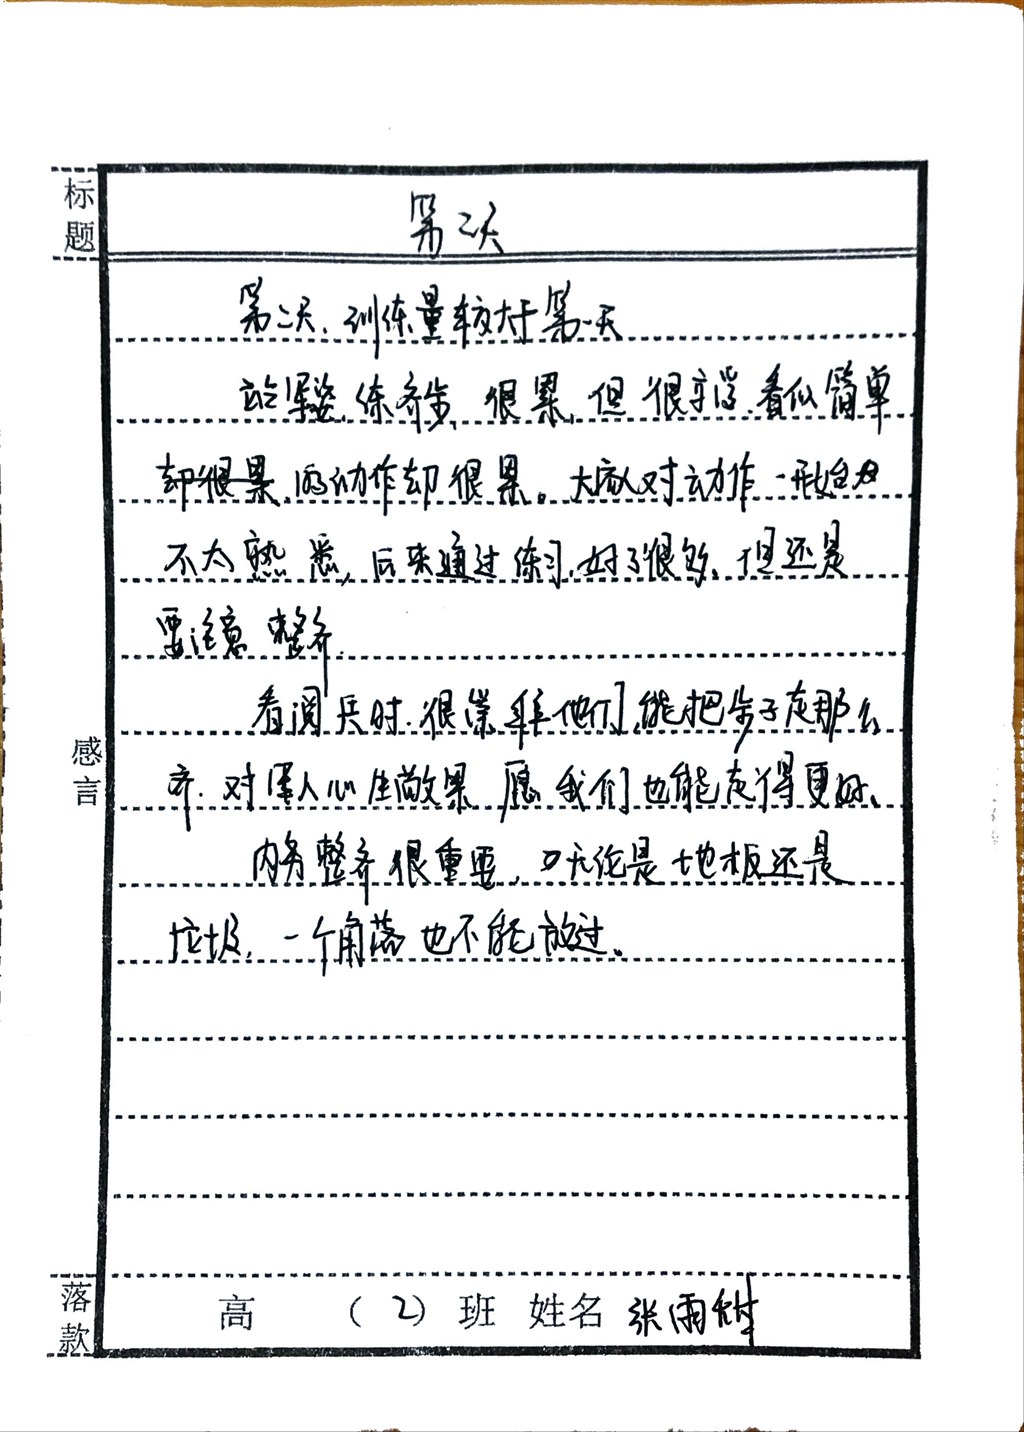 标题
第二天
第二天，训练量较大于第一天
站军姿，练齐步，很累，但很享受，看似简单
却很累的动作却很累。大家对动作一开始
不太熟悉，后来通过练习，好了很多，但还是
要注意整齐.
看阅兵时.很羡慕他们能把步子走那么
感言
齐.对军人心生敬畏 愿我们也能走得更好、
内务整齐很重要，无论是地板还是
垃圾，一个角落也不能放过。
落款
高 （2）班 姓名 张雨